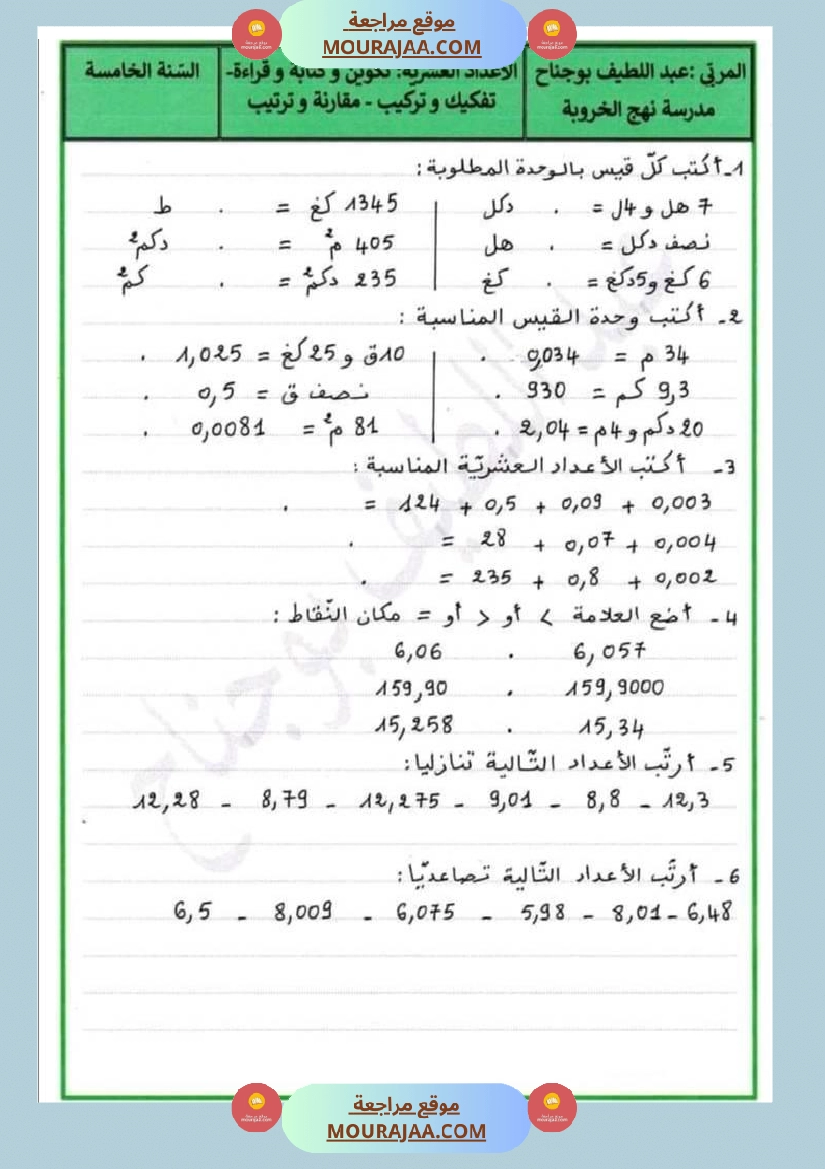 موقع مراجعة
MOURAJAA.COM
المربّي :عبد اللطيف بوجناح
مدرسة نهج الخروبة
الأعداد العشريّة: تكوين و كتابة و قراءة-
تفكيك و تركيب - مقارنة و ترتيب
السّنة الخامسة
1ـ أكتب كلّ قيس بالوحدة المطلوبة:
7 هل و 4ل = . دكل | 1345 كغ = . ط
نصف دكل = . هل | 405 م² = . دكم²
6 كغ و 5دكغ = . كغ | 235 دكم² = . كم²
2ـ أكتب وحدة القيس المناسبة :
34 م = 0,034 . | 10ق و 25 كغ = 1,025 .
9,3 كم = 930 . | نصف ق = 0,5 .
20 دكم و 4م = 2,04 . | 81 م² = 0,0081 .
3ـ أكتب الأعداد العشريّة المناسبة :
0,003 + 0,09 + 0,5 + 124 = .
0,004 + 0,07 + 28 = .
0,002 + 0,8 + 235 = .
4ـ أضع العلامة < أو > أو = مكان النّقاط :
6,057 . 6,06
159,9000 . 159,90
15,34 . 15,258
5ـ أرتّب الأعداد التّالية تنازليا:
12,3 - 8,8 - 9,01 - 12,275 - 8,79 - 12,28
6ـ أرتّب الأعداد التّالية تصاعديّا:
6,48 - 8,01 - 5,98 - 6,075 - 8,009 - 6,5
عبد اللطيف بوجناح
موقع مراجعة
MOURAJAA.COM